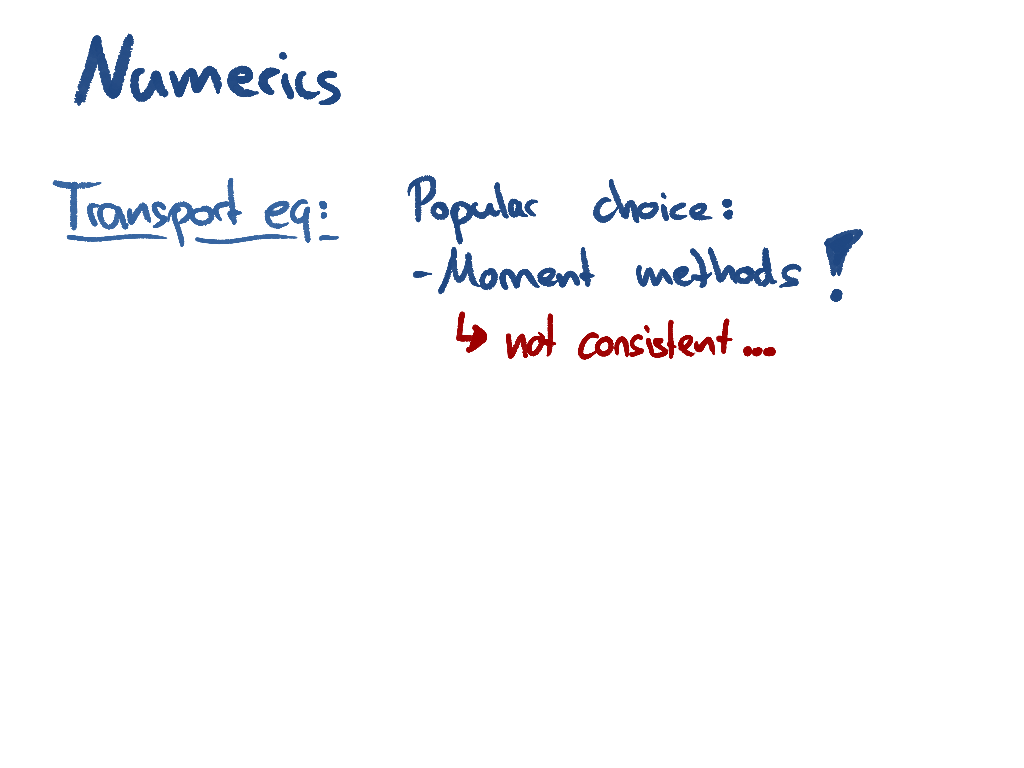 Numerics
Transport eq: Popular choice:
- Moment methods !
↳ not consistent...